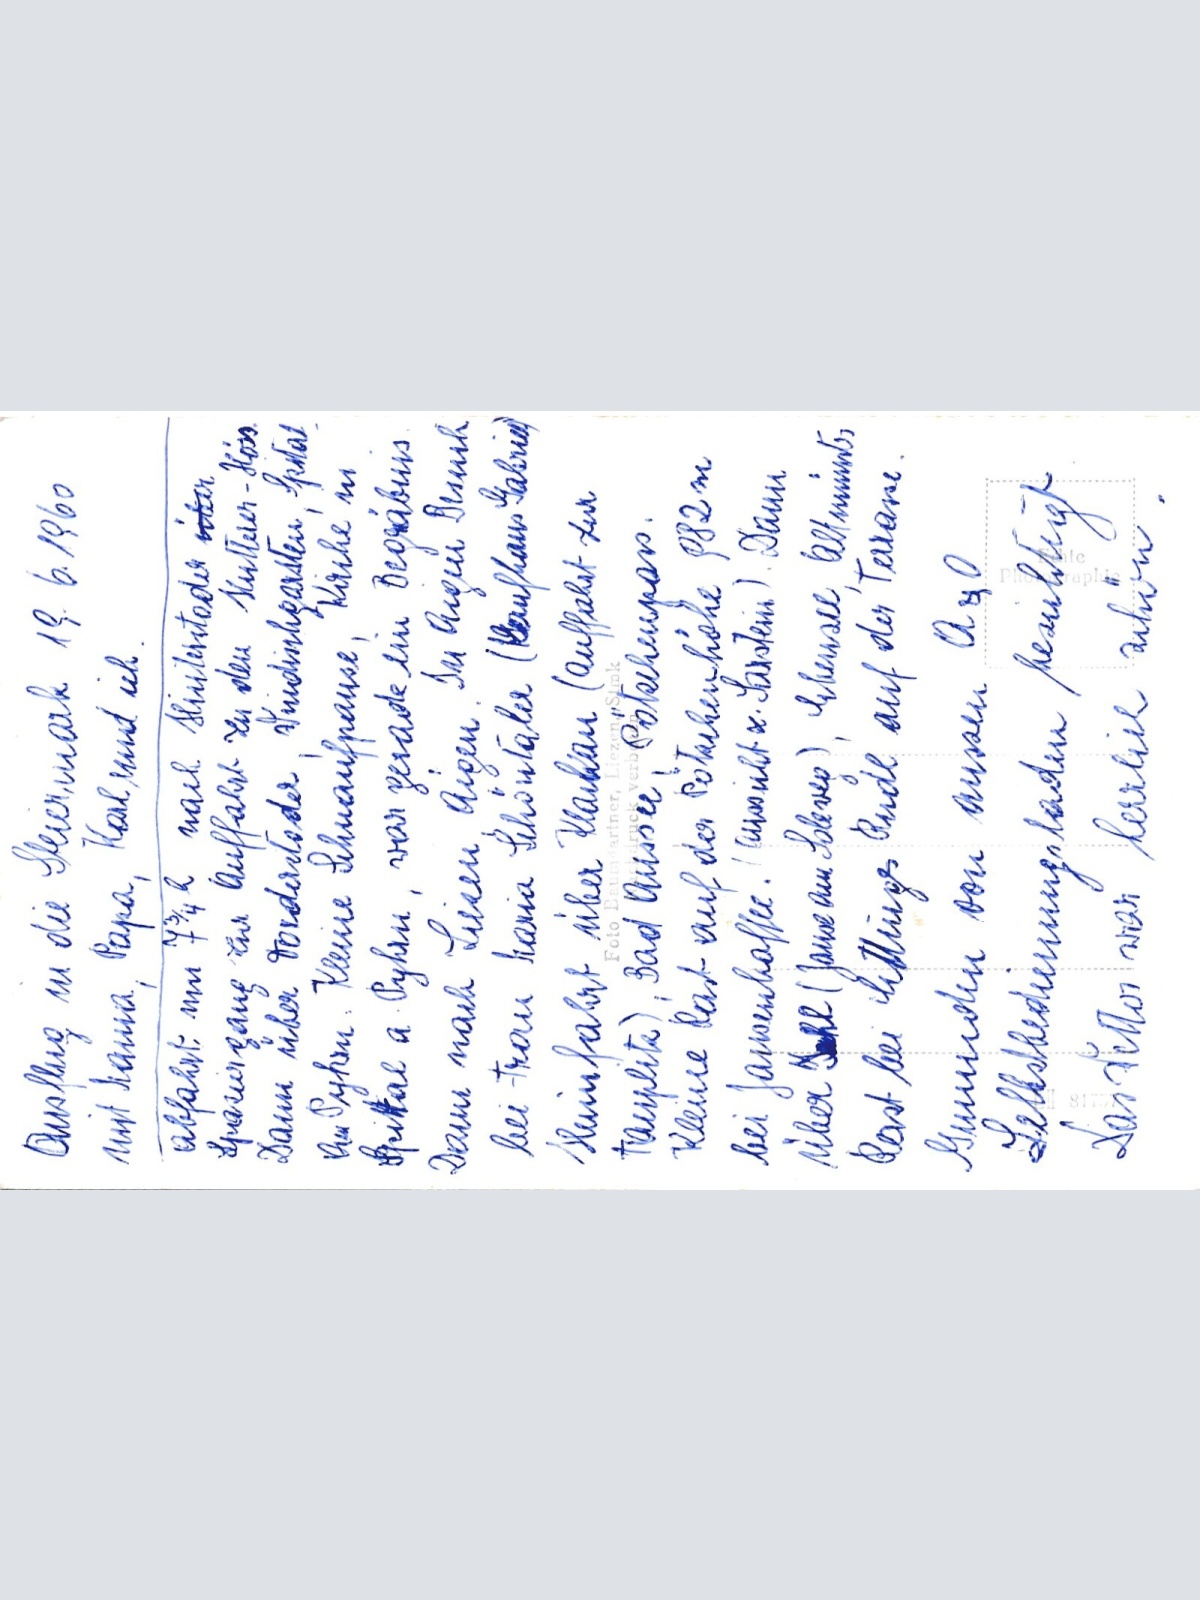 Ausflug in die Steiermark 19. 6. 1960
mit Mama, Papa, Karl, und ich.
Abfahrt um 7 3/4 h nach Hinterstoder
Spaziergang zur Auffahrt zu den Hutterer-Höss.
Dann über Vorderstoder, Windischgarsten, Spital
am Pyhrn. Kleine Schnaufpause, Kirche in
Spital a. Pyhrn, war gerade ein Begräbnis.
Dann nach Liezen Aigen. In Aigen Besuch
bei Frau Maria Schöntaler (Kaufhaus Gabriel)
Heimfahrt über Klachau (Auffahrt zur
Tauplitz), Bad Aussee, Pötschenpass.
Kleine Rast auf der Pötschenhöhe 982 m
bei Jausenkaffee. (Aussicht z. Sarstein). Dann
über Ischl (Jause am Soleweg), Ebensee, Altmünster
Rast bei auf der Terasse.
Gmunden von aussen
Selbstbedienungsladen besichtigt
Das Wetter war herrlich schön.
Foto Baumgartner, Liezen, Stmk
Nachdruck verboten
Echte
Photographie